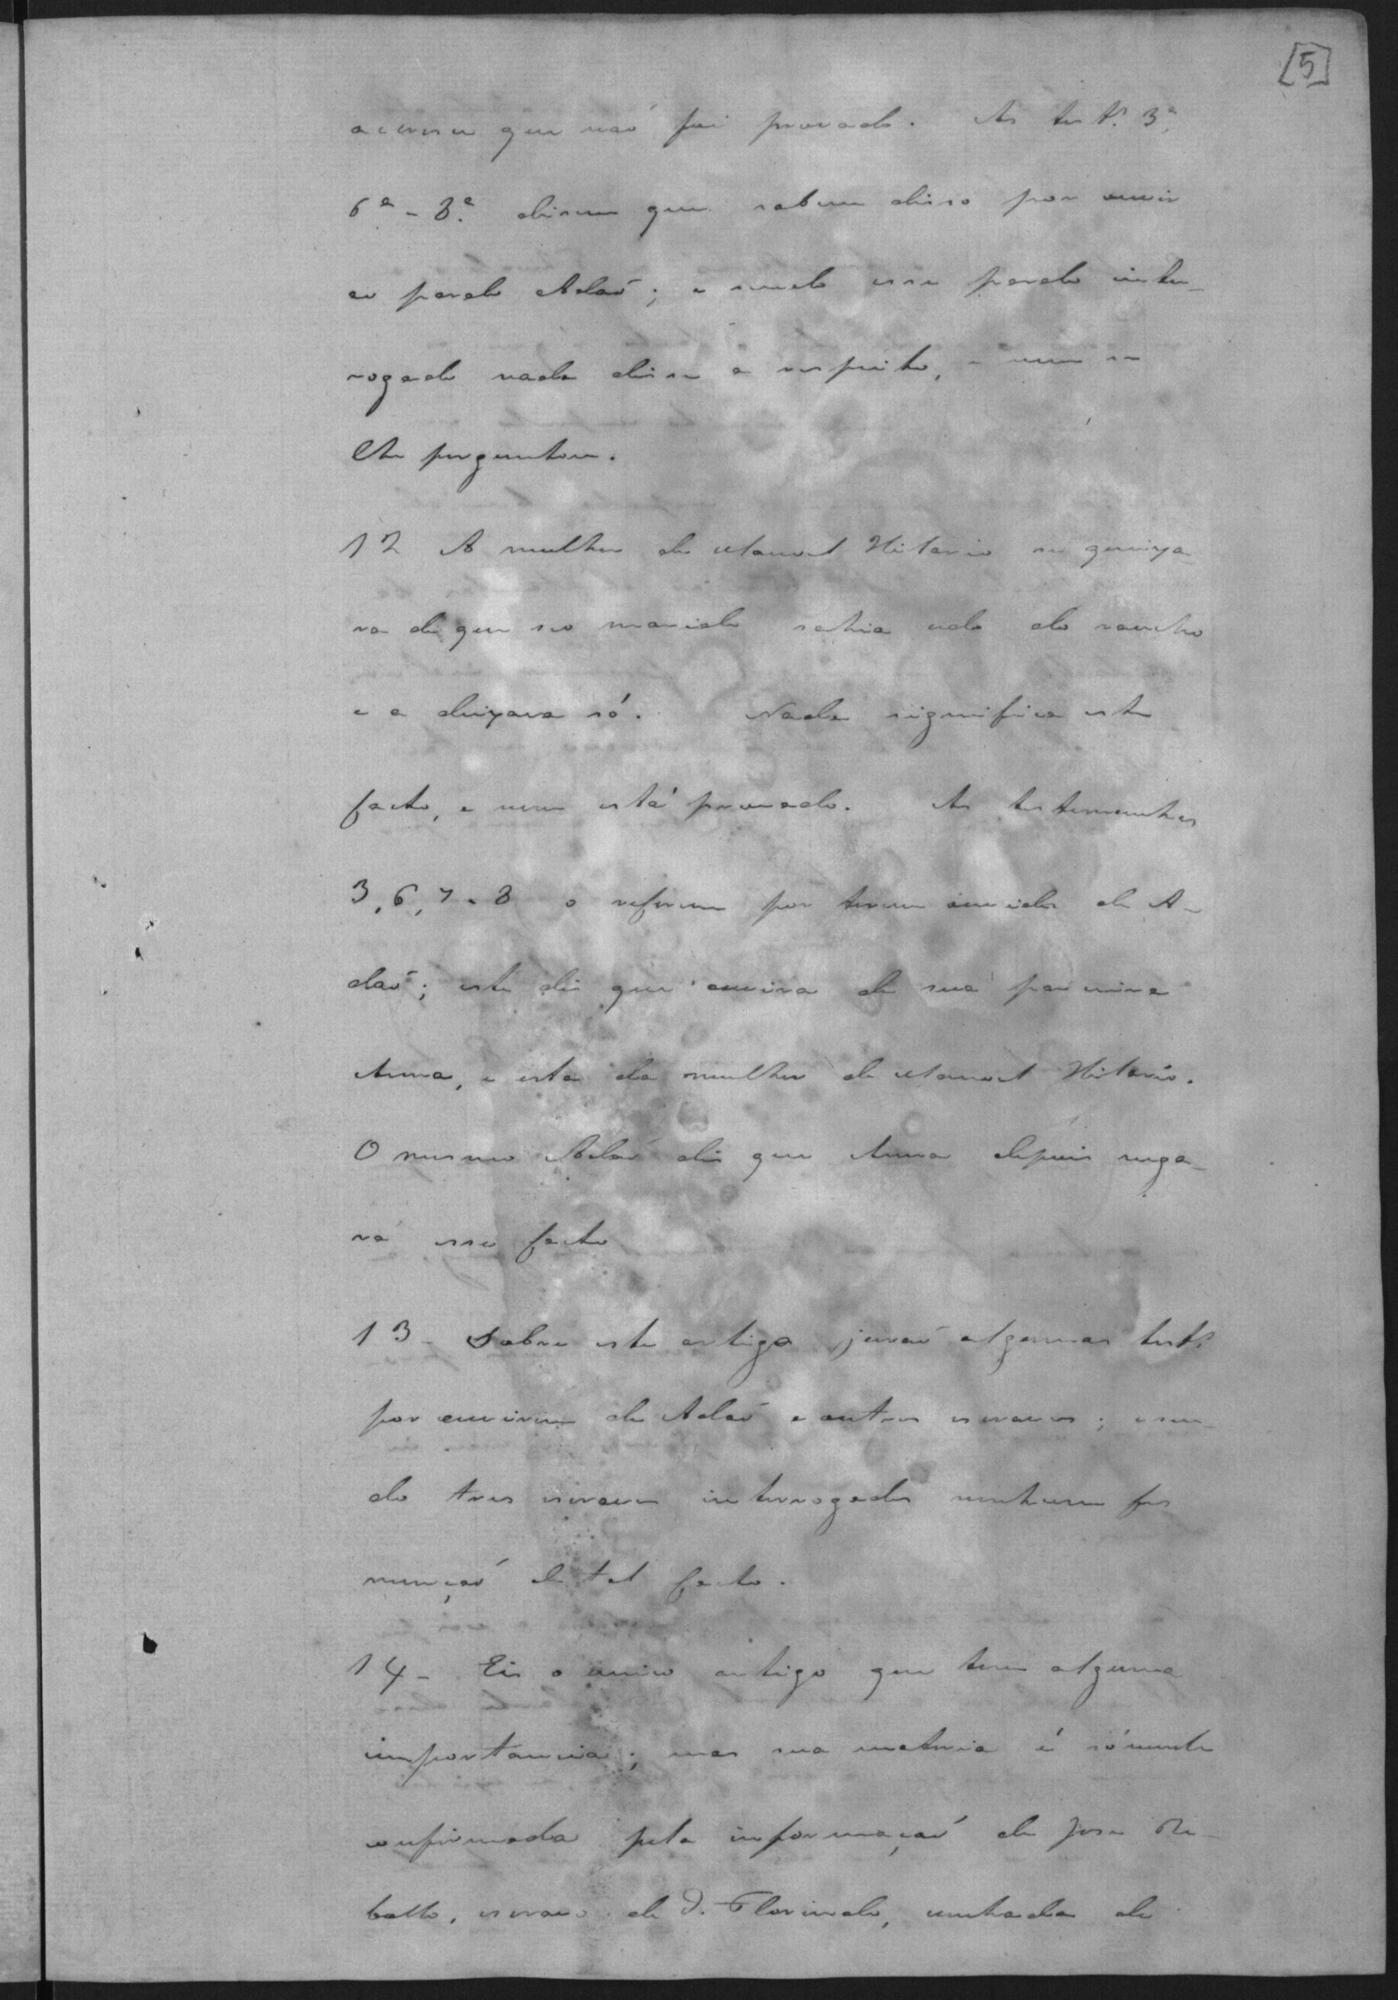 [5]
accresce que não foi provado. As test.ᵃˢ 3ª,
6ª e 8ª disem que sabem disso por ouvir
ao pardo Adão; e sendo esse pardo inter-
rogado nada disse a respeito, e nem se
lhe perguntou.
12 A mulher de Manoel Hilario se queixa-
va de que seo marido sahia do rancho
e a deixava só. Nada significa este
facto, e nem está provado. As testemunhas
3, 6, 7 e 8 o referem por terem ouvido de A-
dão; este diz que ouvira de sua parceira
Anna, e esta da mulher de Manoel Hilario.
O mesmo Adão diz que Anna depois nega-
va esse facto
13 - Sobre este artigo jurão algumas test.ᵃˢ
por ouvirem de Adão e outros escravos; e sen-
do tres escravos interrogados nenhum fez
menção de tal facto.
14 - Eis o unico artigo que tem alguma
importancia; mas sua materia é sómente
confirmada pela informação de José Re-
bollo, escravo de D. Florinda, cunhada de